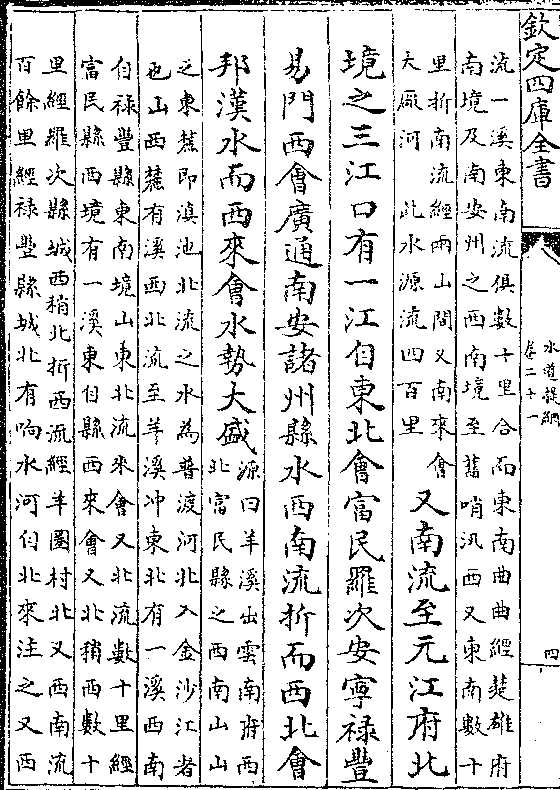 欽定四庫全書
水道提綱
卷二十一
四
流一溪東南流俱數十里合而東南曲曲經楚雄府
南境及南安州之西南境至舊哨汛西又東南數十
里折南流經兩山間又南來會
大厰河 此水源流四百里
又南流至元江府北
境之三江口有一江自東北會富民羅次安寧禄豐
易門西會廣通南安諸州縣水西南流折而西北會
邦漢水而西來會水勢大盛
源曰羊溪出雲南府西
北富民縣之西南山山
之東麓即滇池北流之水為普渡河北入金沙江者
也山西麓有溪西北流至羊溪冲東北有一溪西南
自禄豐縣東南境山東北流來會又北流數十里經
富民縣西境有一溪東自縣西來會又北稍西數十
里經羅次縣城西稍北折西流經羊圈村北又西南流
百餘里經禄豐縣城北有响水河自北來注之又西